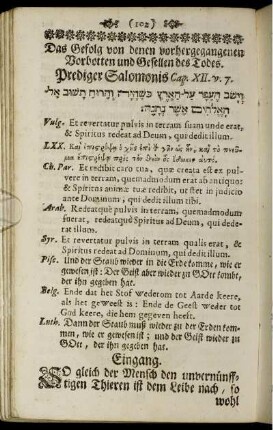 (102)
Das Gefolg von denen vorhergegangenen
Vorbotten und Gesellen des Todes.
Prediger Salomonis Cap. XII. v. 7.
וְיָשֹׁב הֶעָפָר עַל־הָאָרֶץ כְּשֶׁהָיָה וְהָרוּחַ תָּשׁוּב אֶל־
הָאֱלֹהִים אֲשֶׁר נְתָנָהּ׃
Vulg. Et revertatur pulvis in terram suam unde erat,
& Spiritus redeat ad Deum, qui dedit illum.
LXX. Καὶ ἐπιστρέψῃ ὁ χοῦς ἐπὶ τ γῆν ὡς ἦν, καὶ τὸ πνεῦ-
μα ἐπιστρέψῃ πρὸς τὸν Θεὸν ὃς ἔδωκεν αὐτό.
Ch. Par. Et redibit caro tua, quæ creata est ex pul-
vere in terram, quemadmodum erat ab antiquo:
& Spiritus animæ tuæ redibit, ut stet in judicio
ante Dominum, qui dedit illum tibi.
Arab. Redeatque pulvis in terram, quemadmodum
fuerat, redeatque Spiritus ad Deum, qui dede-
rat illum.
Syr. Et revertatur pulvis in terram qualis erat, &
Spiritus redeat ad Dominum, qui dedit illum.
Pisc. Und der Staub wieder in die Erd komme, wie er
gewesen ist: Der Geist aber wieder zu GOtt komme,
der ihn gegeben hat.
Belg. Ende dat het Stof wederom tot Aarde keere,
als het geweest is: Ende de Geest weder tot
God keere, die hem gegeven heeft.
Luth. Dann der Staub muß wieder zu der Erden kom-
men, wie er gewesen ist; und der Geist wieder zu
GOtt, der ihn gegeben hat.
Eingang.
SO gleich der Mensch den unvernünff-
tigen Thieren ist dem Leibe nach, so
wohl